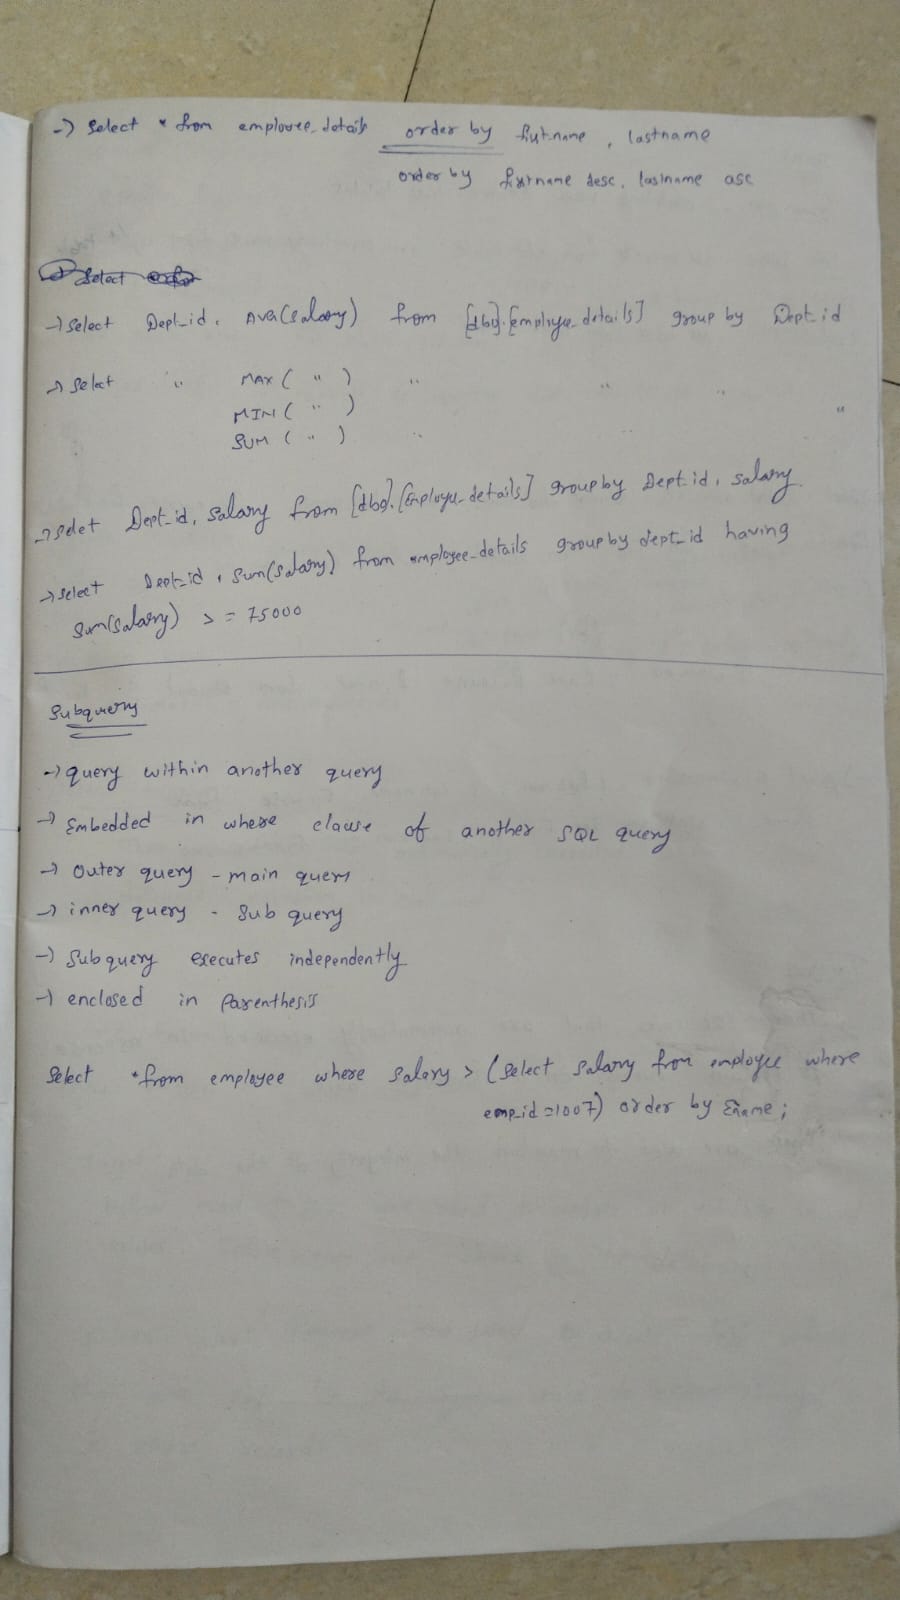 -> Select * from employee_details order by firstname, lastname
order by firstname desc, lastname asc
Select
-> Select Dept_id, AVG(salary) from [dbo].[employee_details] group by Dept_id
-> Select " MAX ( " ) " " "
MIN ( " )
SUM ( " ) " " "
-> Select Dept_id, salary from [dbo].[Employee_details] group by Dept_id, salary
-> select Dept_id, sum(salary) from employee_details group by dept_id having
sum(salary) >= 75000
Subquery
-> query within another query
-> Embedded in where clause of another SQL query
-> Outer query - main query
-> inner query - Sub query
-> Subquery executes independently
-> enclosed in Parenthesis
Select * from employee where salary > (select salary from employee where
emp_id = 1007) order by Ename;